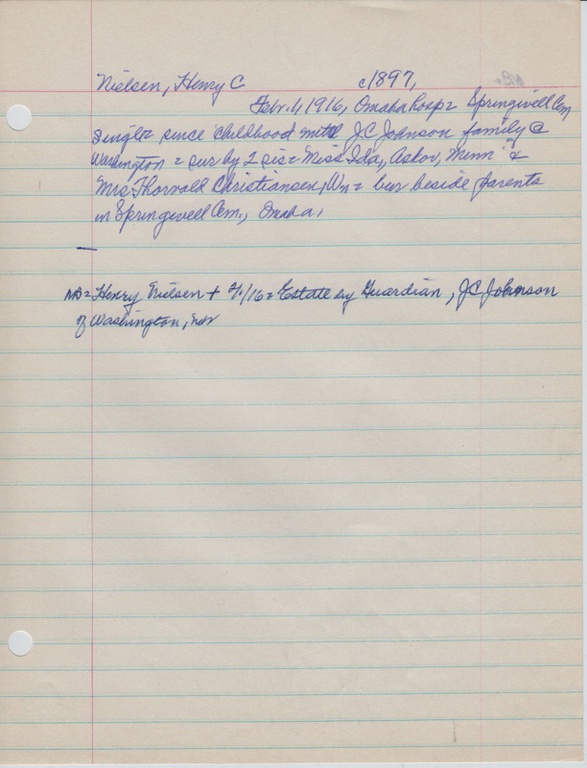 Nielsen, Henry C c1897,
Febr. 4, 1916, Omaha hosp = Springwell Cem
single = since childhood with JC Johnson family @
Washington = sur by 2 sis = Miss Ida, Askov, Minn &
Mrs Thorvald Christiansen, Wn = bur beside parents
in Springwell Cem., Omaha,
—
NB = Henry Nielsen + 2/ /16 = Estate by Guardian, JC Johnson
of Washington, Nebr